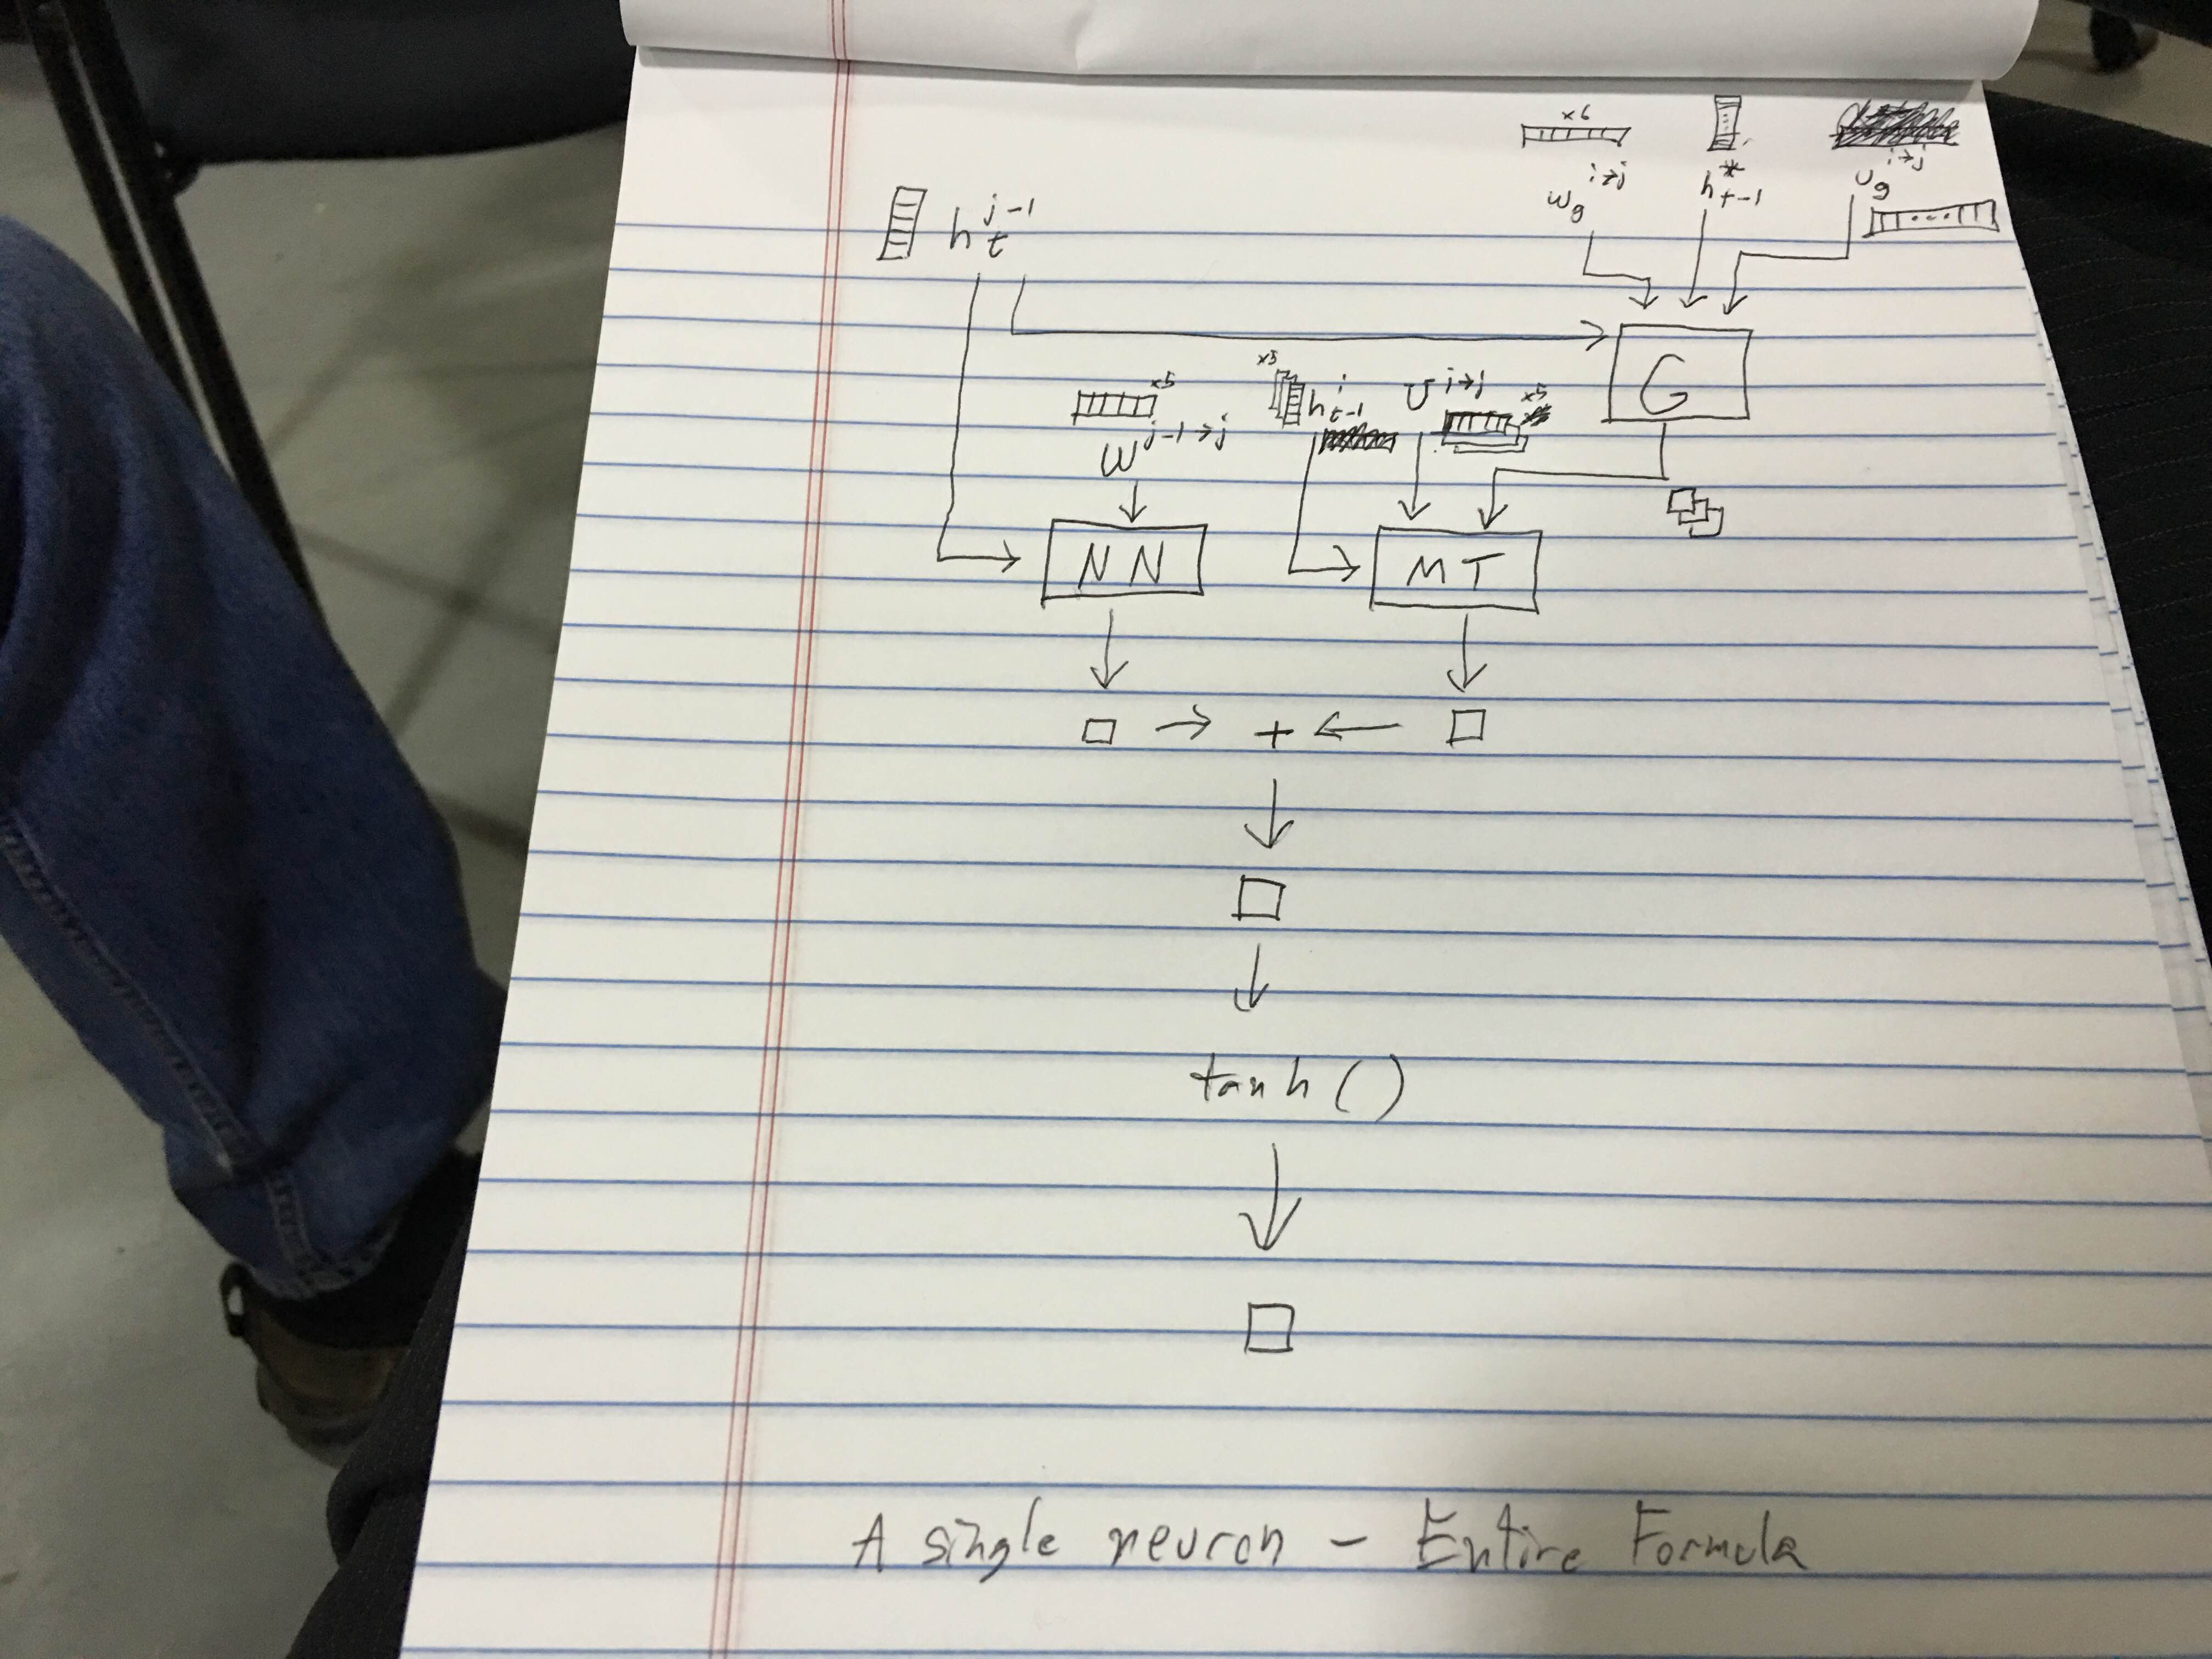 x6
w_g^{i→j} h_{t-1}^* u_g^{i→j}
h_t^{j-1}
G
x5 x3 h_{t-1}^i U^{i→j} x5
W^{j-1→j}
NN MT
+
tanh ( )
A single neuron - Entire Formula